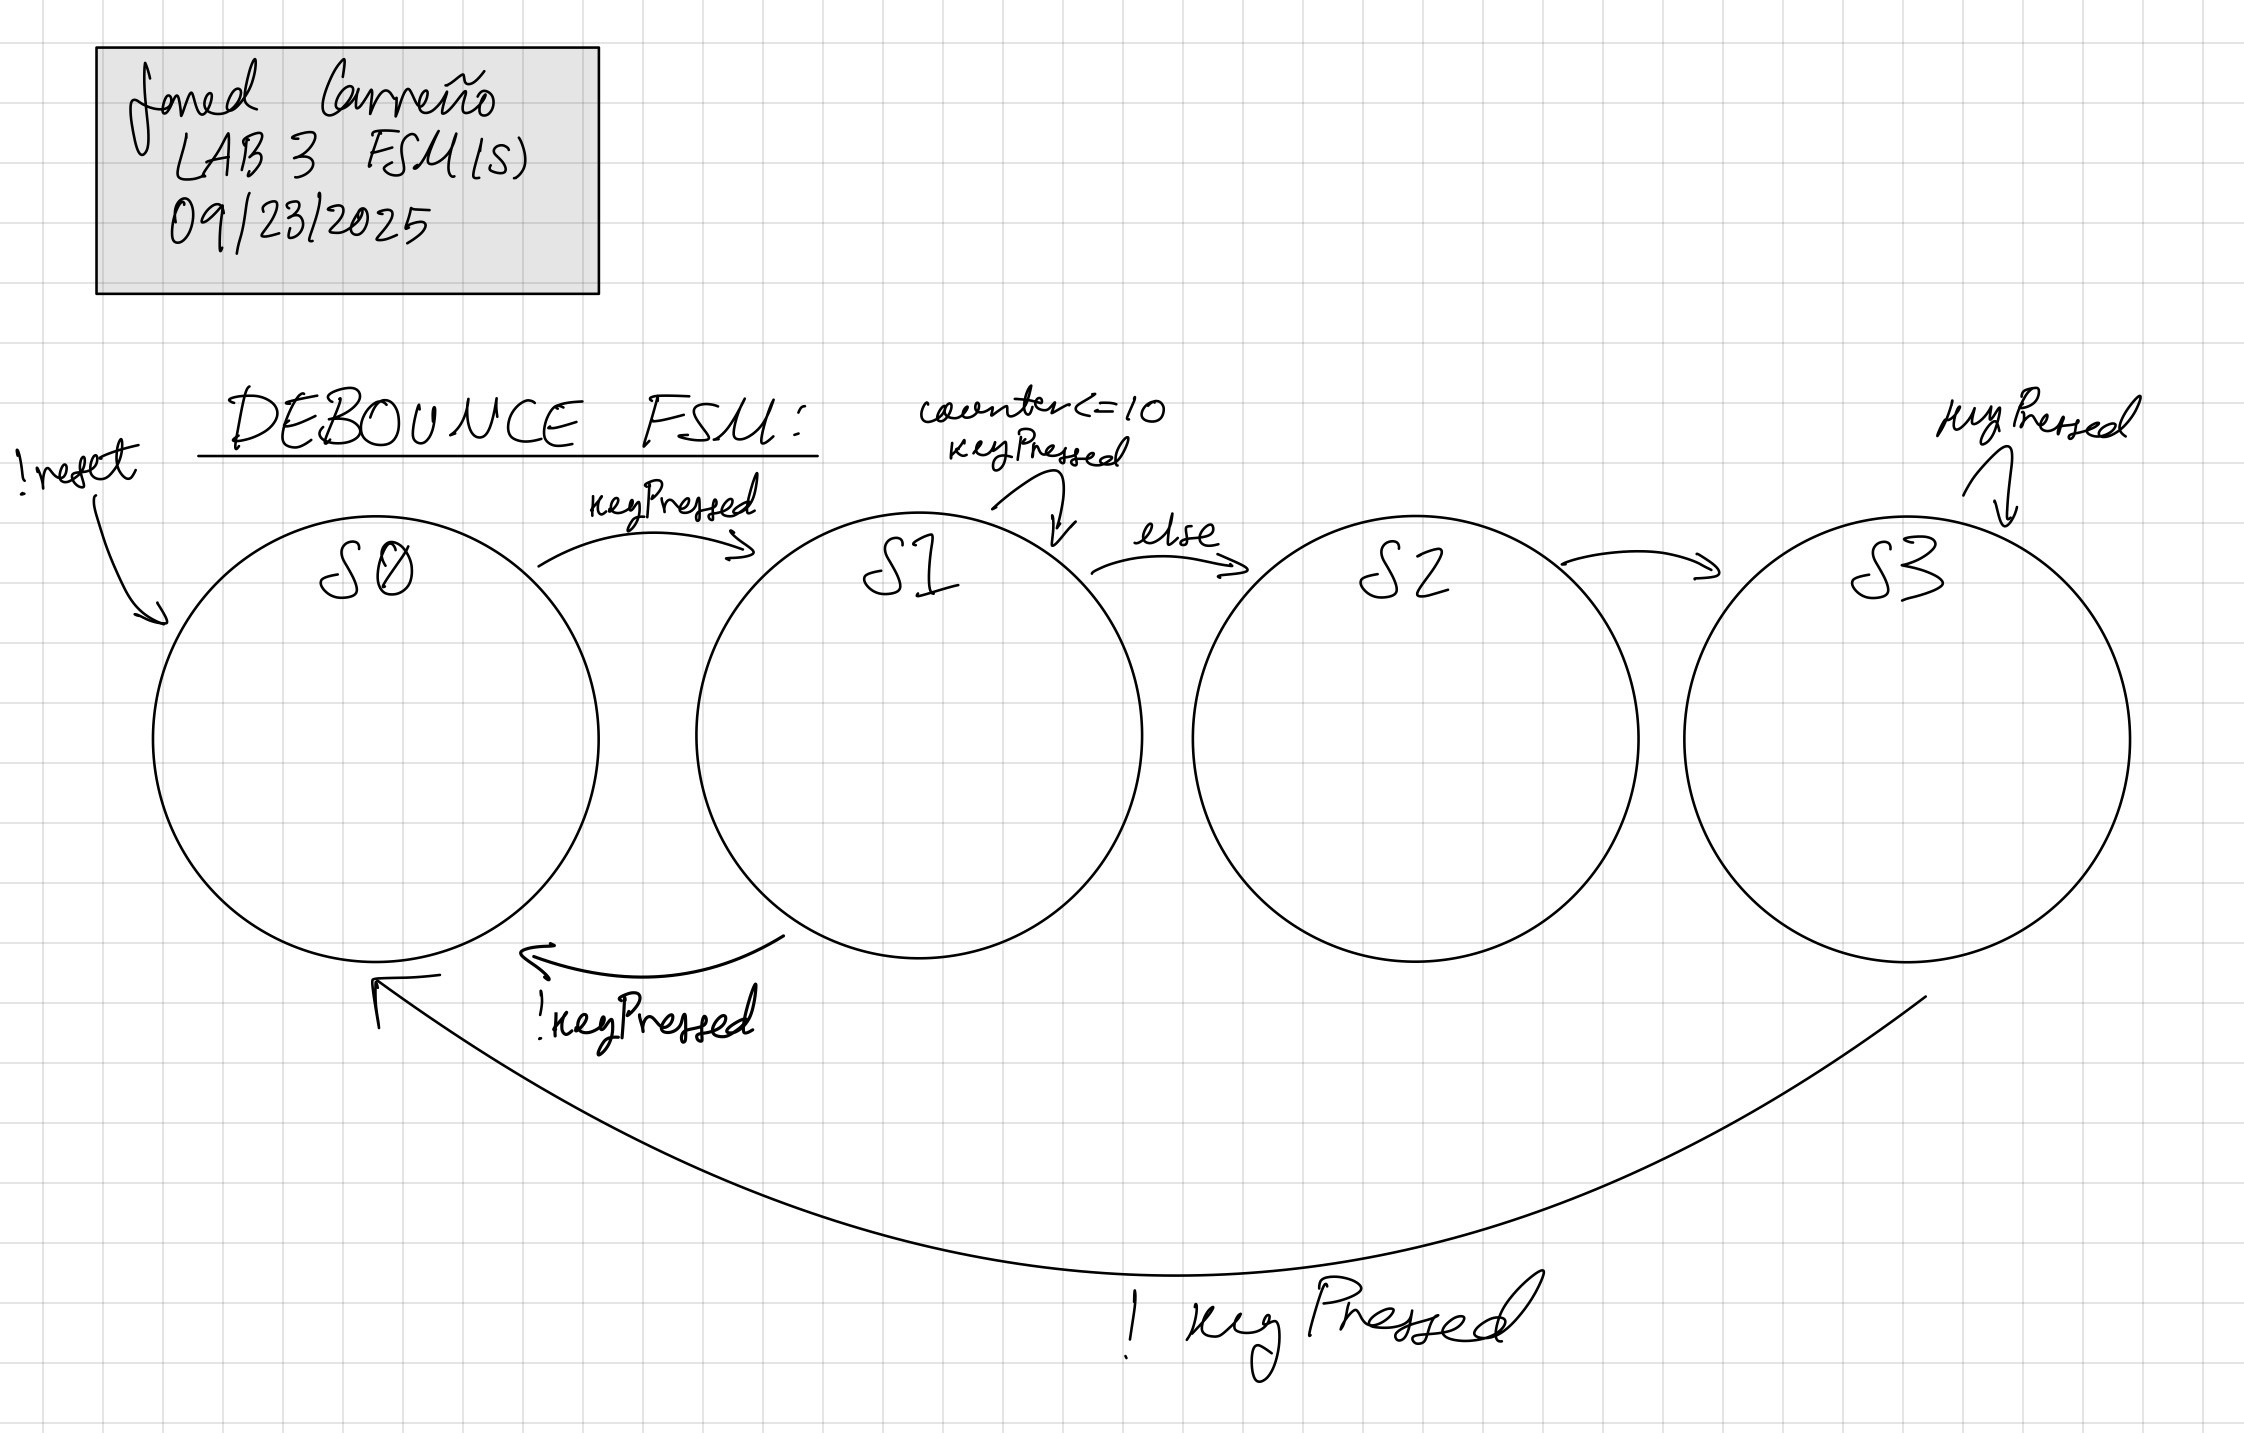 Carreño
LAB 3 FSM(s)
09/23/2025
DEBOUNCE FSM:
!reset
keyPressed
counter<=10
keyPressed
else
keyPressed
S0
S1
S2
S3
!keyPressed
! keyPressed